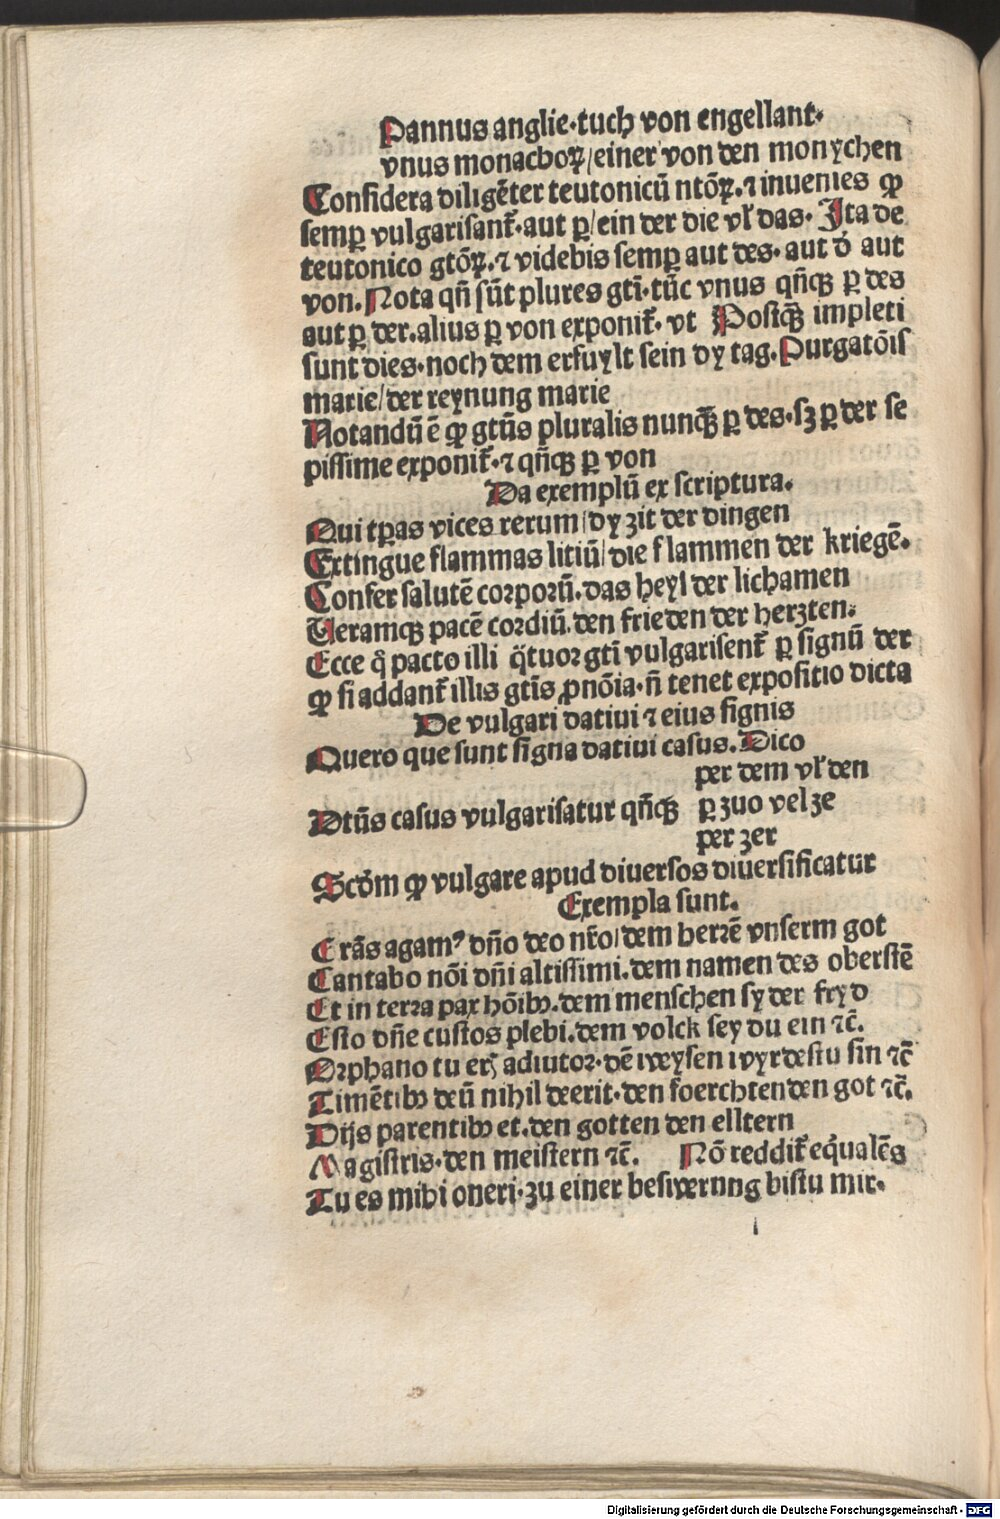 Pannus anglie·tuch von engellant·
vnus monachoꝝ/einer von den monychen
Considera diligēter teutonicū ntōꝝ.⁊ inuenies ꝙ
semꝑ vulgarisant᷑·aut ꝑ/ein der die vl̓ das· Ita de
teutonico gtōꝝ.⁊ videbis semꝑ aut des·aut ō aut
von. Nota qñ sūt plures gtī·tūc vnus qñqꝫ ꝑ des
aut ꝑ der.alius ꝑ von exponit᷑· vt Postqꝫ̄ impleti
sunt dies·noch dem erfuylt sein dy tag. Purgatōis
marie/der reynung marie
Notandū ē ꝙ gtūs pluralis nunqꝫ̄ ꝑ des·sꝫ ꝑ der se
pissime exponit᷑·⁊ qñqꝫ ꝑ von
Da exemplū ex scriptura.
Qui tꝑas vices rerum/dy zit der dingen
Extingue flammas litiū/die flammen der kriegē.
Confer salutē corporū.das heyl der lichamen
Veramqꝫ pacē cordiū.den frieden der herzten.
Ecce q̇ pacto illi q̄tuor gtī vulgarisent᷑ ꝑ signū der
ꝙ si addant᷑ illis gtīs ꝓnōia·ñ tenet expositio dicta
De vulgari datiui ⁊ eius signis
Quero que sunt signa datiui casus. Dico
per dem vl̓ den
Dtūs casus vulgarisatur qñqꝫ ꝑ zuo vel ze
per zer
Scd̄m ꝙ vulgare apud diuersos diuersificatur
Exempla sunt.
Grās agamꝰ dño deo nr̄o/dem herrē vnserm got
Cantabo nōi dñi altissimi.dem namen des oberstē
Et in terra pax hōibꝫ.dem menschen sy der fryd
Esto dñe custos plebi.dem volck sey du ein ⁊c̄.
Orphano tu erꝭ adiutor·dē weysen wyrdestu sin ⁊c̄
Timētibꝫ deū nihil deerit·den foerchtenden got ⁊c̄.
Dijs parentibꝫ et.den gotten den elltern
Magistris·den meistern ⁊c̄. Nō reddit᷑ eq̇ualēs
Tu es mihi oneri·zu einer beswernng bistu mir.
Digitalisierung gefördert durch die Deutsche Forschungsgemeinschaft - DFG